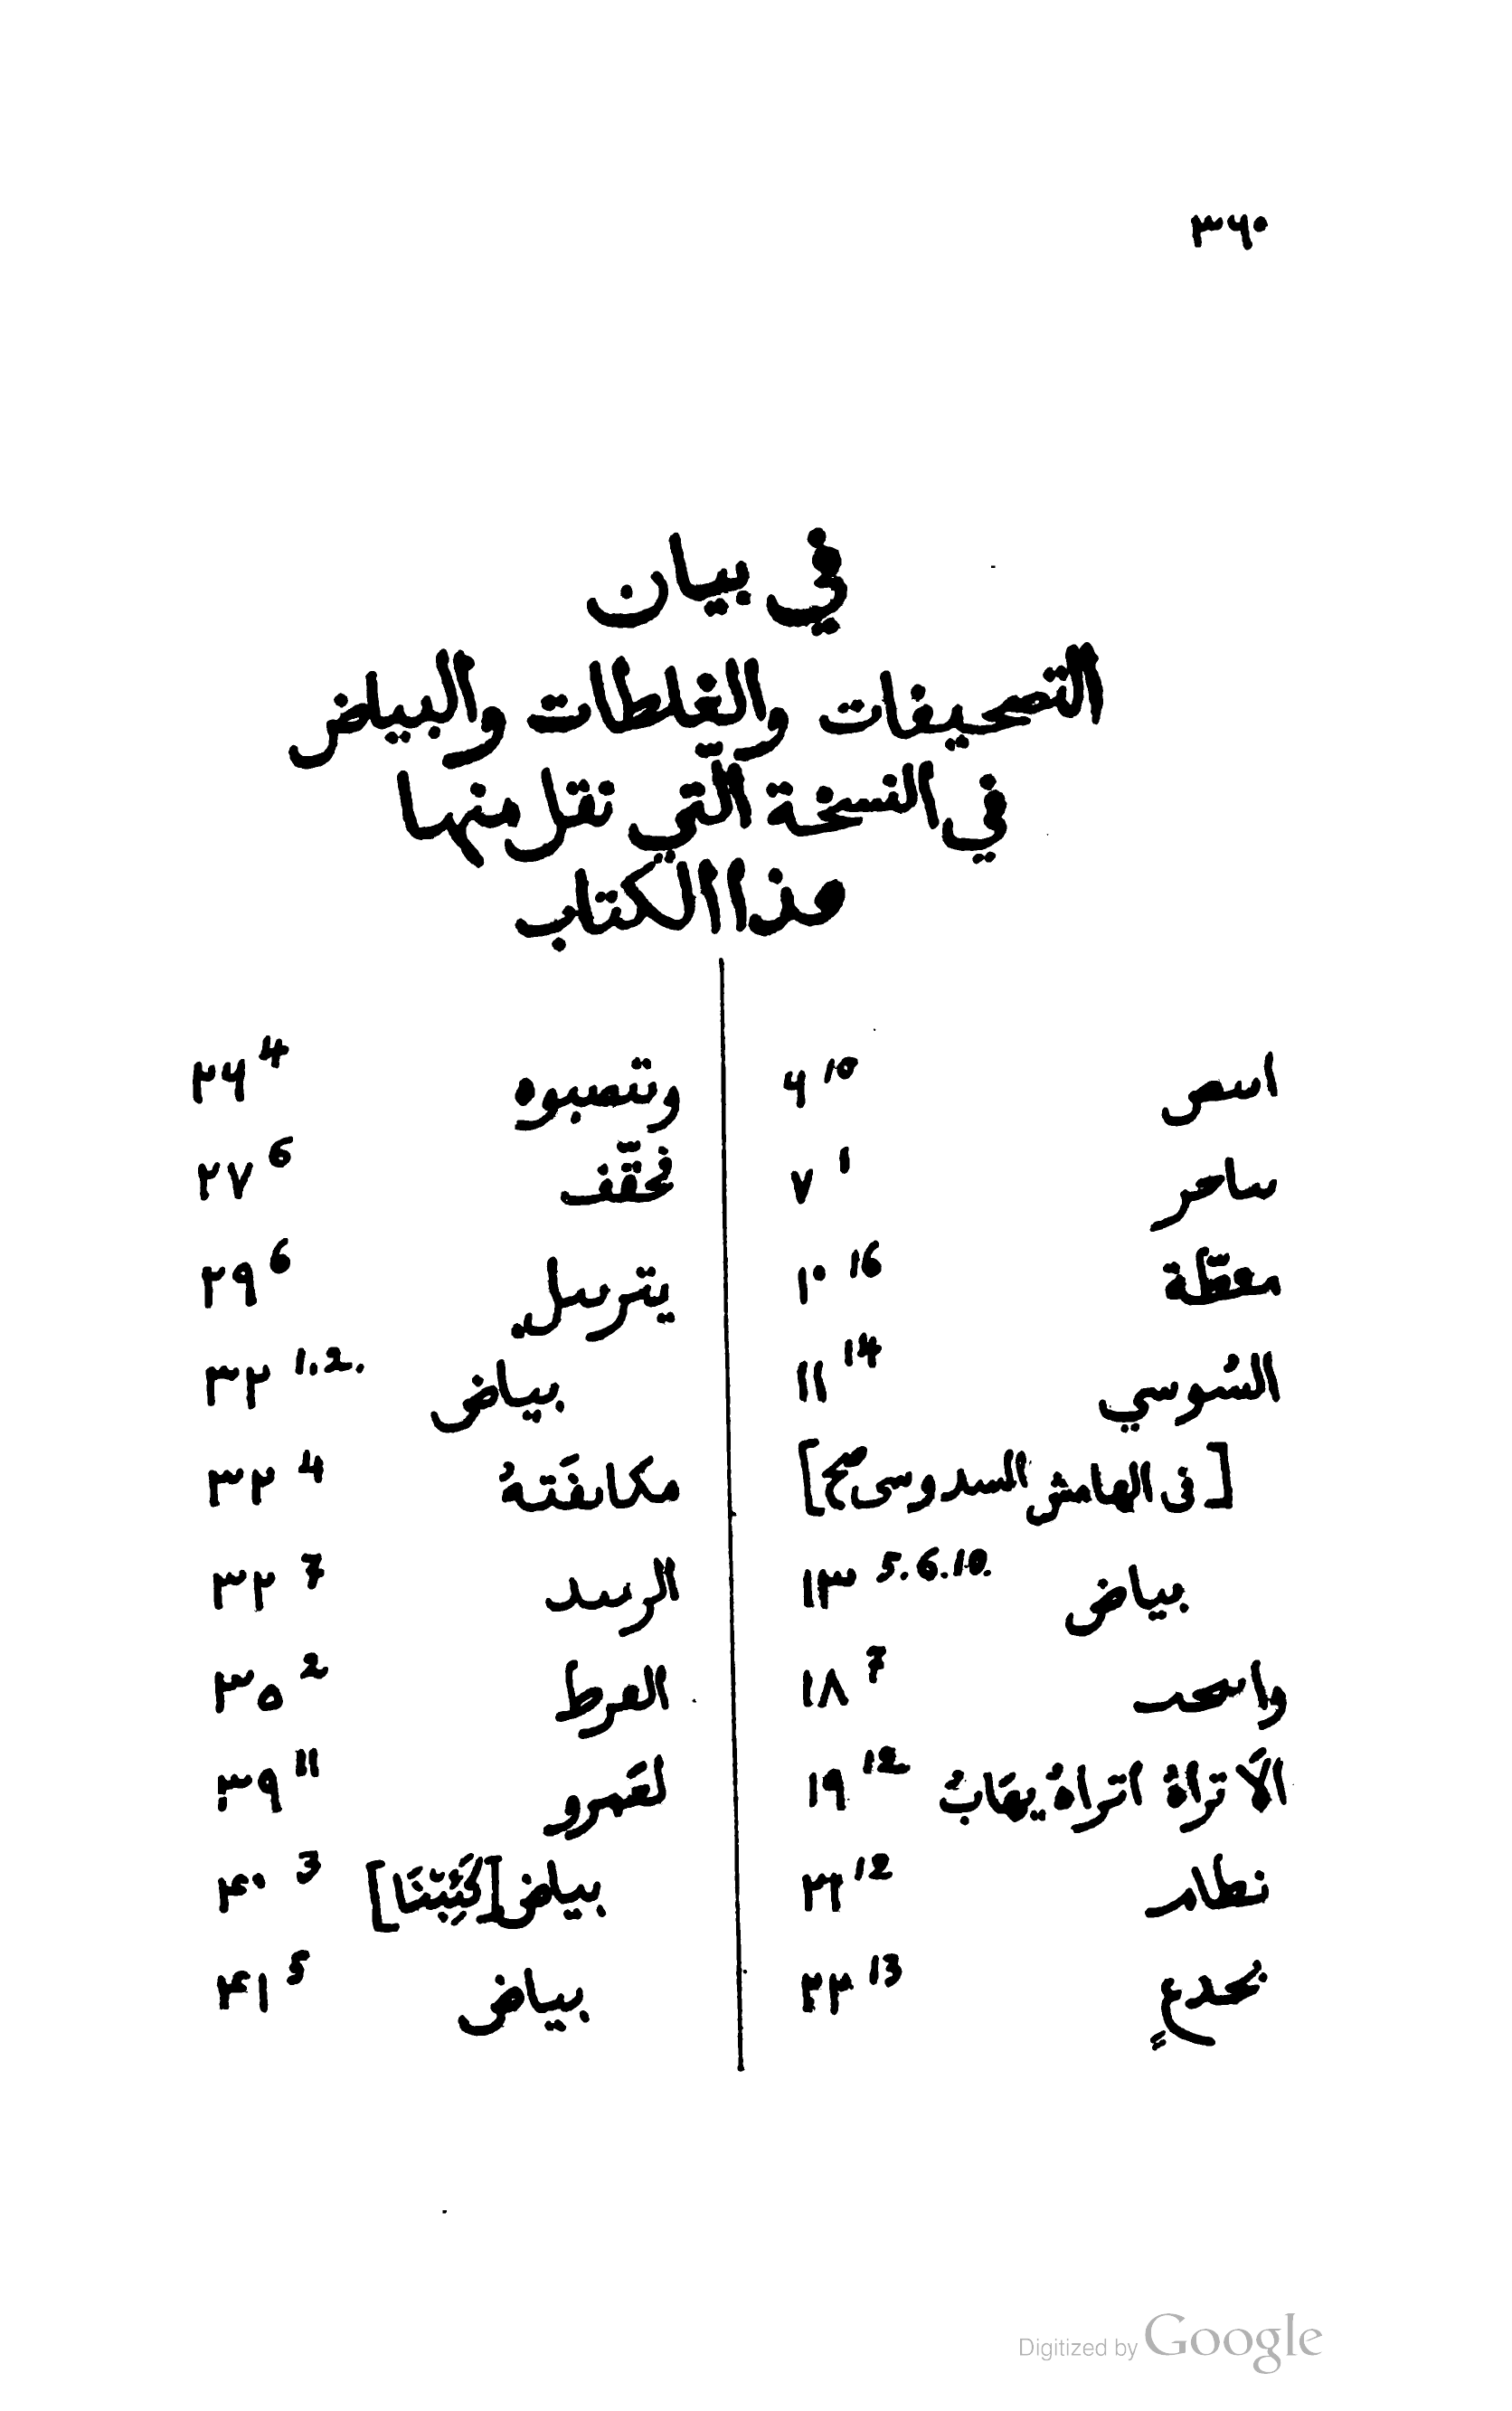 ٣٦٠
في بيان
التصحيفات والغلطات والبياض
في النسخة التي نقل منها
هذا الكتاب
اسص ٦ 10
ساحر ٧ 1
معطّة ١٠ 16
السُوسي ١١ 14
[فى الهامش السدوسى صح]
بياض ١٣ 5.6.10.
واسحد ١٨ 7
الَا تراهُ اتراهُ يهَابُ ١٩ 12
نطار ٢٢ 12
محدعٍ ٢٣ 13
وتنصبوه ٢٦ 4
٢٧ 6
يترسل ٢٩ 6
بياض ٣٢ 1.2.
مكاىفَتهُ ٣٢ 4
الرسد ٣٢ 7
العرط ٣٥ 2
لعَمرو ٣٩ 11
بياض ٤٠ 3
بياض ٤١ 5
Digitized by Google